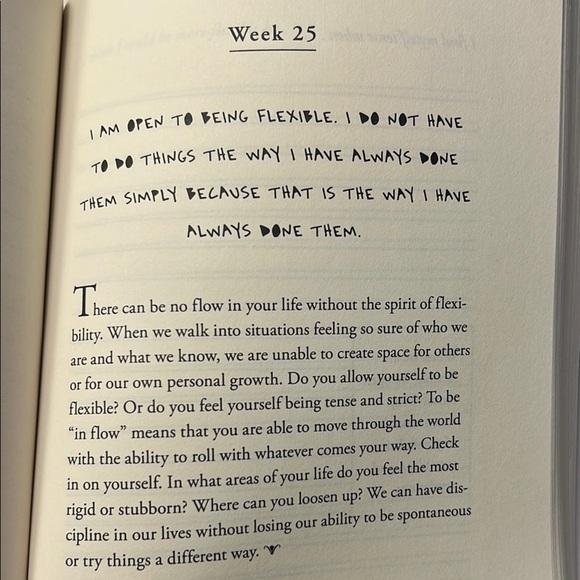 Week 25
I AM OPEN TO BEING FLEXIBLE. I DO NOT HAVE
TO DO THINGS THE WAY I HAVE ALWAYS DONE
THEM SIMPLY BECAUSE THAT IS THE WAY I HAVE
ALWAYS DONE THEM.
There can be no flow in your life without the spirit of flexi-
bility. When we walk into situations feeling so sure of who we
are and what we know, we are unable to create space for others
or for our own personal growth. Do you allow yourself to be
flexible? Or do you feel yourself being tense and strict? To be
“in flow” means that you are able to move through the world
with the ability to roll with whatever comes your way. Check
in on yourself. In what areas of your life do you feel the most
rigid or stubborn? Where can you loosen up? We can have dis-
cipline in our lives without losing our ability to be spontaneous
or try things a different way.